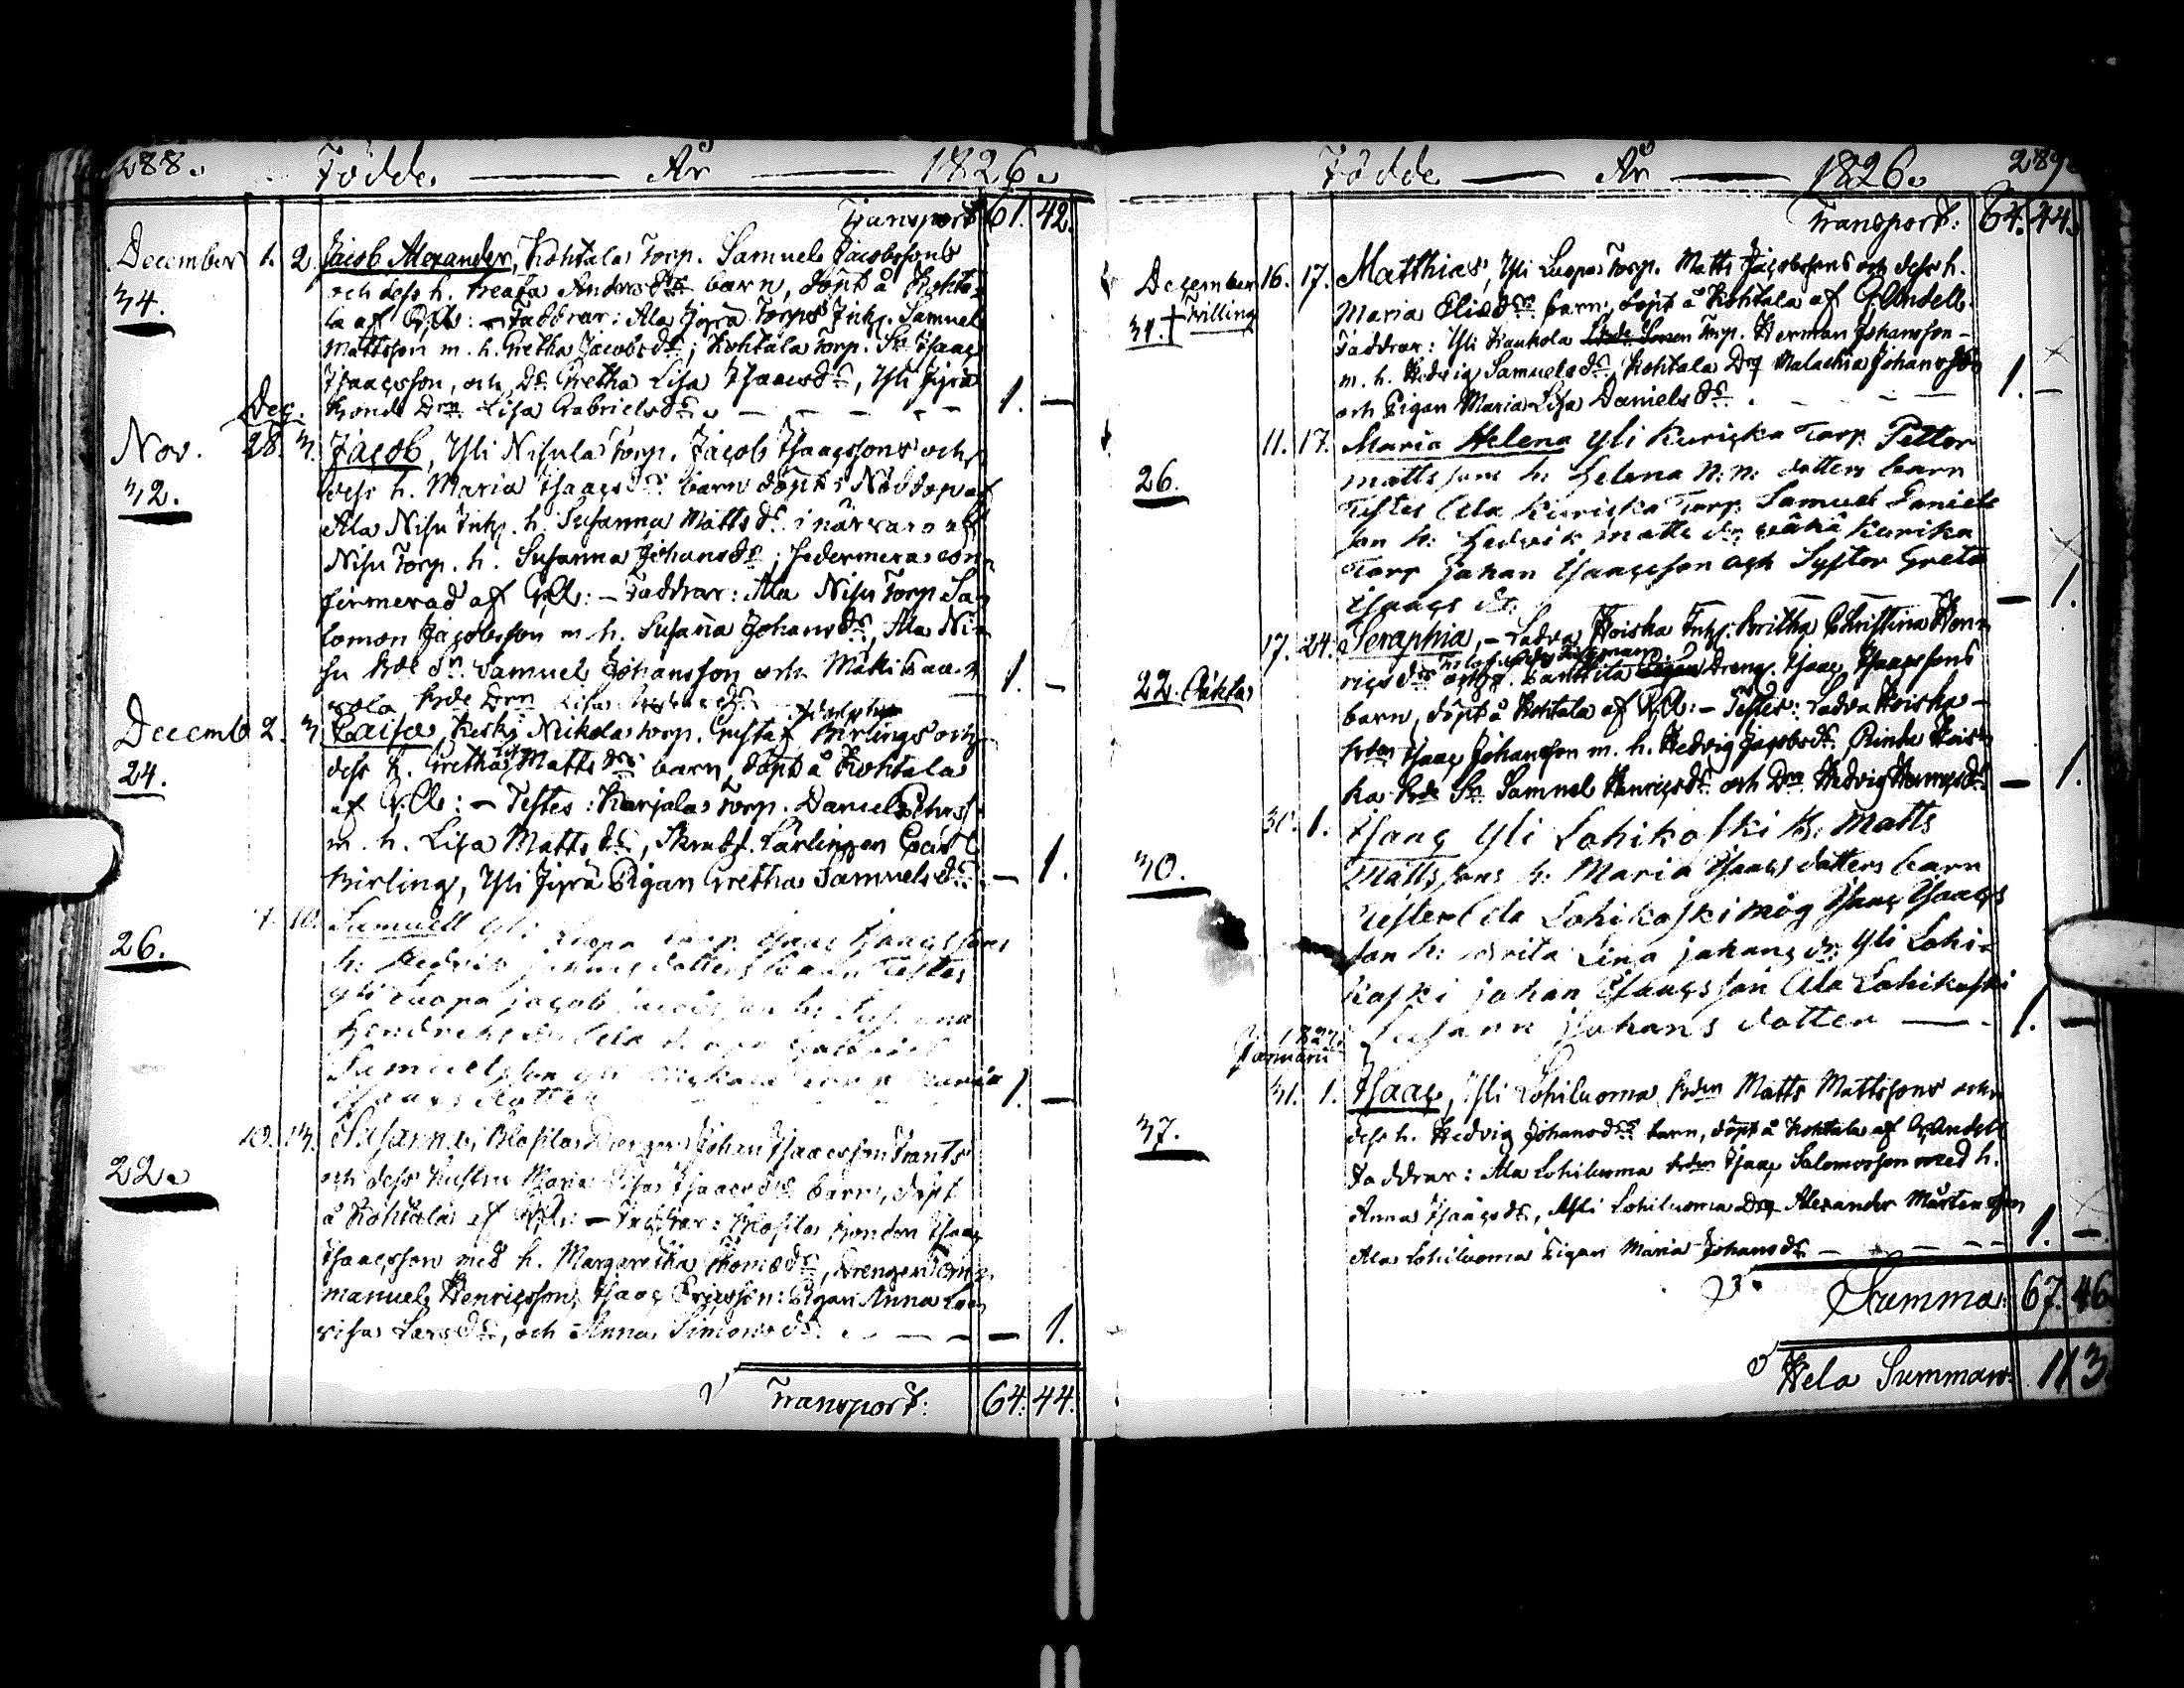 288. Födde — År — 1826.
Transport 61. 42.
December 1. 2. Jacob Alexander, Kohtala Torp. Samuel Jacobssons
34. och dess h. Beata Andersdrs barn, döpt å Kohta-
la af : Faddrar: Ala Jyrä Torps Inh. Samuel
Mattsson m. h. Gretha Jacobsdr; Kohtala Torp. Sn Isaac
Isaacsson, och Dr Gretha Lisa Isaacsdr, Yli Jyrä
Bonde Drn Lisa Gabrielsdr. 1. —
Dec.
Nov. 28. 3. Jacob, Yli Nisula Torp. Jacob Isaacssons och
32. dess h. Maria Isaacsdrs barn döpt i Nöddop af
Ala Nisu Inh. h. Susanna Mattsdr i närvaro af
Nisu Torp. h. Susanna Johansdr; sedermera con-
firmerad af : — Faddrar: Ala Nisu Torp Sa-
lomon Jacobsson m h. Susanna Johansdr, Ala Ni-
su Bde Sn Samuel Johansson och Mäki
Bde Drn Lisa 1. —
Decemb 2. 3. Caisa, Keski Nikola Torp. Gustaf Birlings och
24. dess h. Gretha Mattsdrs barn, döpt å Kohtala
af : — Testes: Karjala Torp. Daniel
m. h. Lisa Mattsdr, Lärlingen Carl
Birling, Yli Jyrä Pigan Gretha Samuelsdr. — 1.
7. 10. Samuell Yli Luopa Torp. Isaac Isaacssons
26. h: Hedvik Johans dotters barn Testes
Yli Luopa Jacob h:
Hendrichs dr Ala
Samuelsson Yli Maria
Isaacs dotter 1. —
10. 13. Susanna, Blåfila Drengen Johan Isaacsson Frants
22. och dess hustru Maria Lisa Isaacsdrs barn, döpt
å Kohtala af : — Faddrar: Bonden Isaac
Isaacsson med h. Margaretha Thomædr, Drengen Em-
manuel Henricsson, Isaac Ericsson: Pigan Anna Lo-
visa Larsdr, och Anna Simonsdr. — 1.
Transport: 64. 44.
Födde — År — 1826. 289.
Transport: 64. 44.
December 16. 17. Matthias, Yli Luopa Torp. Matts Jacobssons och dess h.
34. † Trilling Maria Eliædrs barn, döpt å Kohtala af G. Andell.
Faddrar: Yli Kauhola Torp. Herman Johansson
m. h. Hedvig Samuelsdr, Kohtala Drg Malachia Johansson
och Pigan Maria Lisa Danielsdr. 1. —
11. 17. Maria Helena Yli Kuricka Torp. Petter
26. Mattssons h: Helena N: N: dotters barn
Testes Ala Kuricka Torp. Samuel Daniels
son h: Hedvik Matts dr Vähä Kurika
Torp Johan Isaacsson och Syster Greta
Isaacs dr: — 1.
17. 24. Seraphia, — Ladva Koiska Inh. Britha Christina Hen-
22. Oäkta ricsdrs och Panttila Dreng. Isaac Isaacssons
barn, döpt å Kohtala af : — Testes: Ladva Koiska
Bden Isaac Johansson m. h. Hedvig Jacobsdr. Rinda Kois-
ka Bde Sn Samuel Henricsdr och Drn Hedvig Henricsdr — 1.
30. 1. Isaac Yli Lohikoski B: Matts
30. Mattssons h: Maria Isaacs dotters barn
Testes Ala Lohikoski måg Isaac Isaacs
son h: Brita Lina Johans dr: Yli Lohi-
koski Johan Isaacsson Ala Lohikoski
Susann Johans dotter — 1. —
1827.
Januarii
31. 1. Isaac, Yli Lohiluoma Bden Matts Mattssons och
37. dess h. Hedvig Johansdrs barn, döpt å Kohtala af G. Andell
Faddrar: Ala Lohiluoma Bden Isaac Salomosson med h.
Anna Isaacsdr, Yli Lohiluoma Drg Alexander Mårtensson
Ala Lohiluoma Pigan Maria Johansdr — 1. —
Summa: 67. 46
Hela Summan: 113